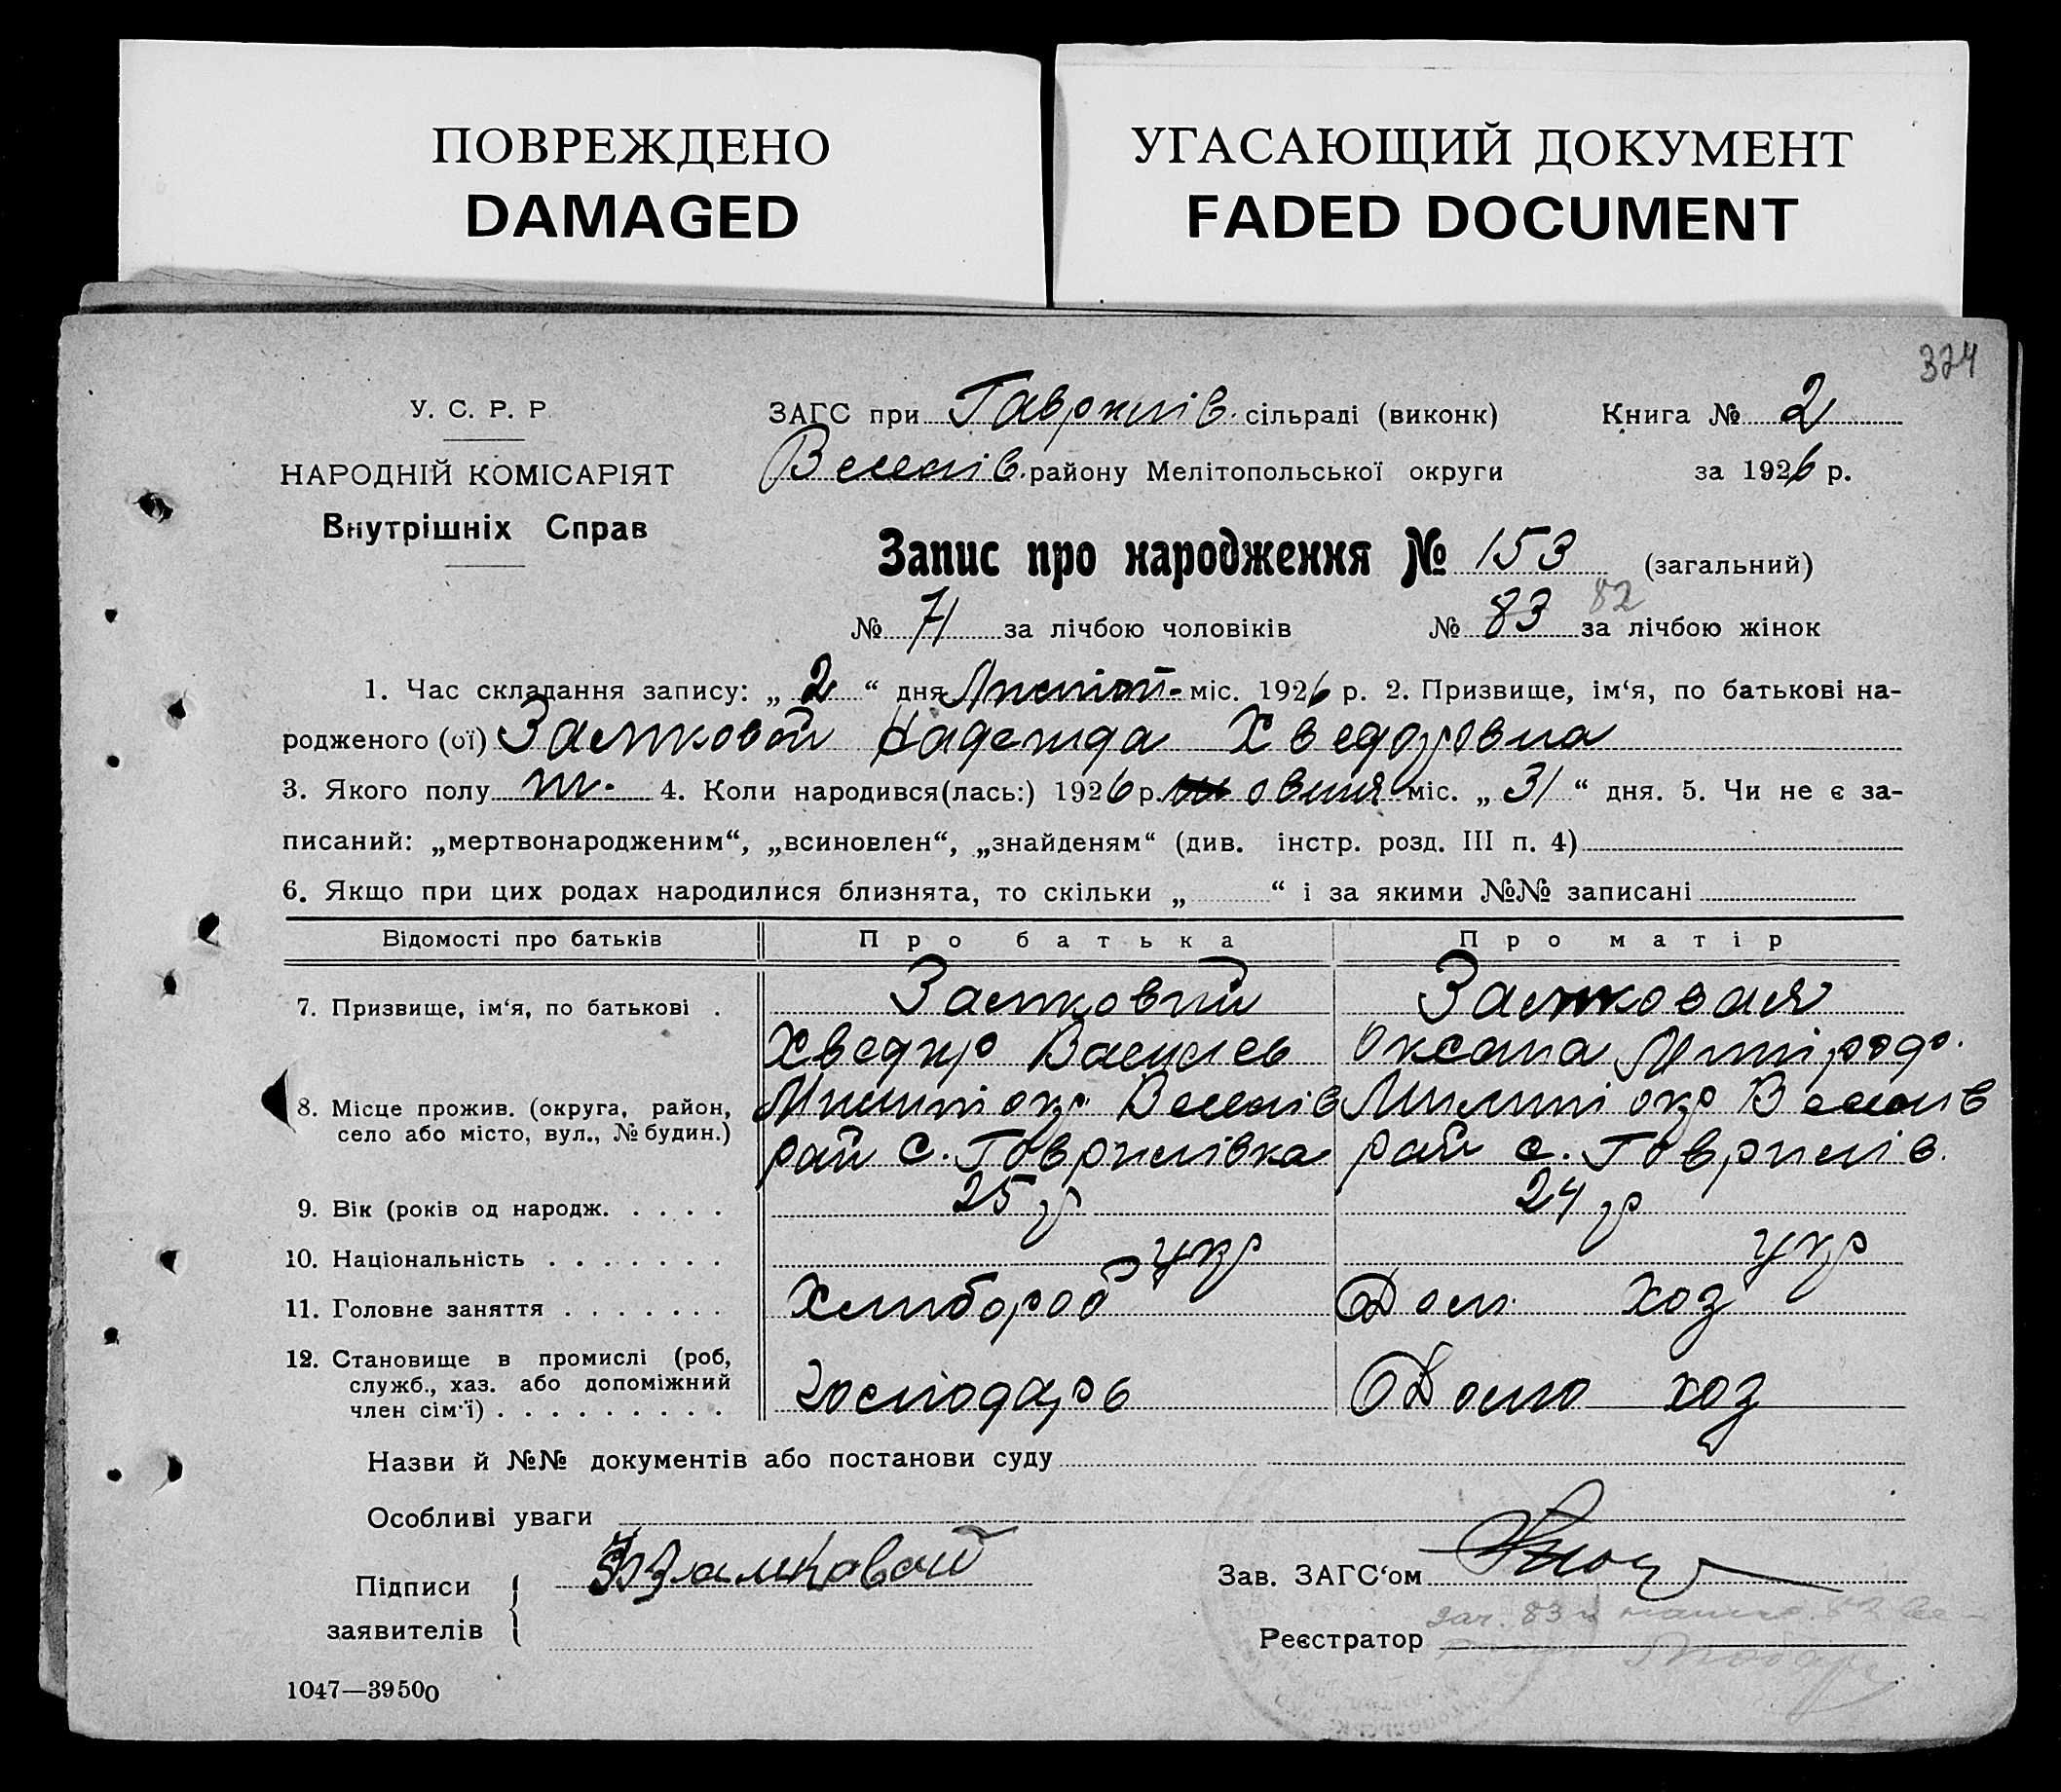 ПОВРЕЖДЕНО
DAMAGED
УГАСАЮЩИЙ ДОКУМЕНТ
FADED DOCUMENT
324
У. С. Р. Р
НАРОДНІЙ КОМІСАРІЯТ
Внутрішніх Справ
ЗАГС при Гаврилів. сільраді (виконк)
Книга № 2
Веселів. району Мелітопольської округи
за 1926 р.
Запис про народження № 153 (загальний)
№ 71 за лічбою чоловіків № 83 82 за лічбою жінок
1. Час складання запису: „ 2 “ дня Листоп. міс. 1926 р. 2. Призвище, ім‘я, по батькові на-
родженого (ої) Замковой Надежда Хведоровна
3. Якого полу ж. 4. Коли народився(лась:) 1926 р. овтня міс. „ 31 “ дня. 5. Чи не є за-
писаний: „мертвонародженим“, „всиновлен“, „знайденям“ (див. інстр. розд. III п. 4)
6. Якщо при цих родах народилися близнята, то скільки „ “ і за якими №№ записані
Відомості про батьків Про батька Про матір
7. Призвище, ім‘я, по батькові . Замковий Замковая
Хведир Василев Оксана
8. Місце прожив. (округа, район, село або місто, вул., № будин.) Милит окр Веселів Милит окр Веселив
рай с. Гаврилівка рай с. Гаврилів.
9. Вік (років од народж. . . . . 25 р 24 р
10. Національність . . . . . . . укр укр
11. Головне заняття . . . . . . . Хлибороб Дом хоз
12. Становище в промислі (роб, служб., хаз. або допоміжний член сім‘ї) . . . . . . . . . Господарь Домо хоз
Назви й №№ документів або постанови суду
Особливі уваги
Підписи заявителів Замковой
Зав. ЗАГС‘ом
Реєстратор
1047—39500